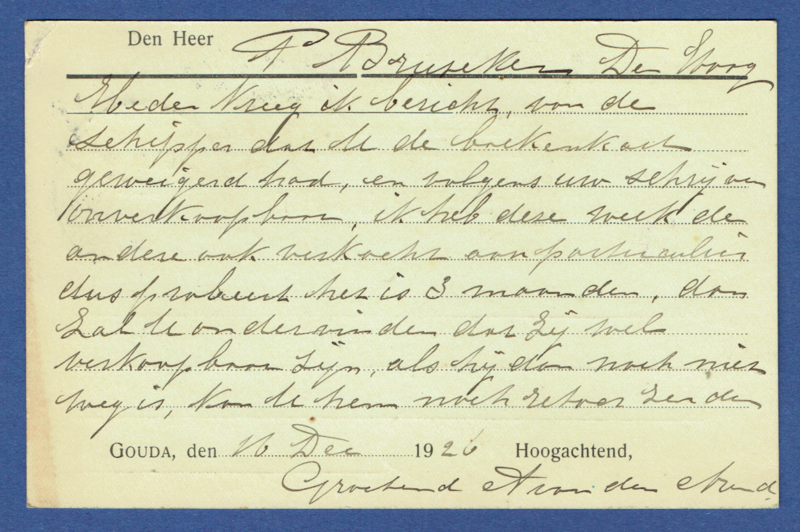 Den Heer P Bruseker Den Haag
Heden kreeg ik bericht, van de
schipper dat U de boekenkast
geweigerd had, en volgens uw schrijven
onverkoopbaar, ik heb deze week de
andere ook verkocht aan particulier
dus probeert het is 3 maanden, dan
zal U ondervinden dat zij wel
verkoopbaar zijn, als hij dan noch niet
weg is, kan U hem noch retoer zenden
GOUDA, den 16 Dec 1926 Hoogachtend,
Groetend A van den